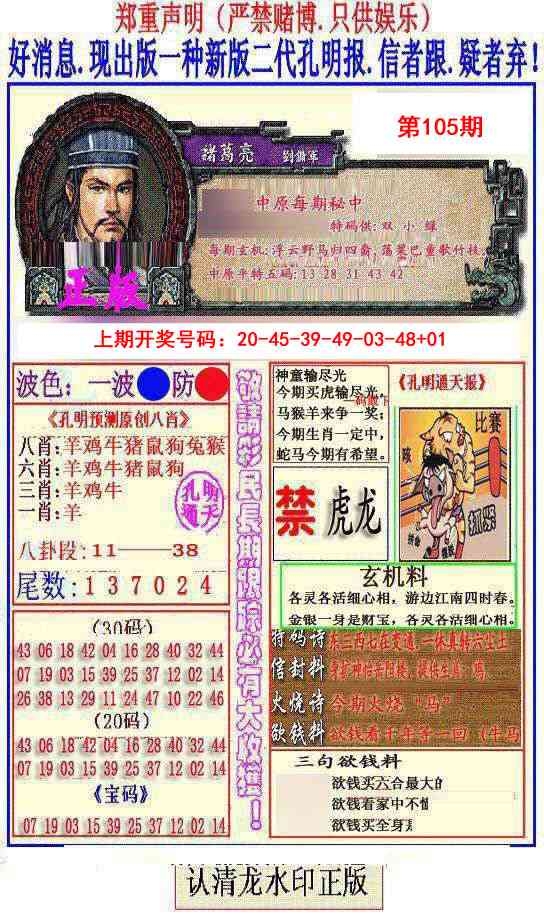 郑重声明（严禁赌博.只供娱乐）
好消息.现出版一种新版二代孔明报.信者跟.疑者弃！
諸葛亮 劉備軍
第105期
中原每期秘中
特码供:双 小 绿
每期玄机:浮云野马归四裔,荡桨巴童歌竹枝.
中原平特五码:13 28 31 43 42
正版
上期开奖号码：20-45-39-49-03-48+01
波色：一波 防
《孔明预测原创八肖》
八肖:羊鸡牛猪鼠狗兔猴
六肖:羊鸡牛猪鼠狗
三肖:羊鸡牛
一肖:羊
孔明
通天
八卦段:11——38
尾数:137024
(30码)
43 06 18 42 04 16 28 40 32 44
07 19 03 15 39 25 37 12 02 14
26 38 13 29 11 24 47 10 22 46
(20码)
43 06 18 42 04 16 28 40 32 44
07 19 03 15 39 25 37 12 02 14
《宝码》
07 19 03 15 39 25 37 12 02 14
敬請彩民長期跟踪必有大收獲！
神童输尽光
今期买虎输尽光,
马猴羊来争一奖;
今期生肖一定中,
蛇马今期有希望.
《孔明通天报》
比赛
抓乐
禁 虎龙
玄机料
各灵各活细心相，游边江南四时春。
金银一身是财宝，各灵各活细心相。
特码诗:东三西七在变通,一休真转六尘土
信封料:
火烧诗:今期火烧“马”
欲钱料:欲钱看千年等一回（牛马
三句欲钱料
欲钱买六合最大的
欲钱看家中不
欲钱买全身
认清龙水印正版